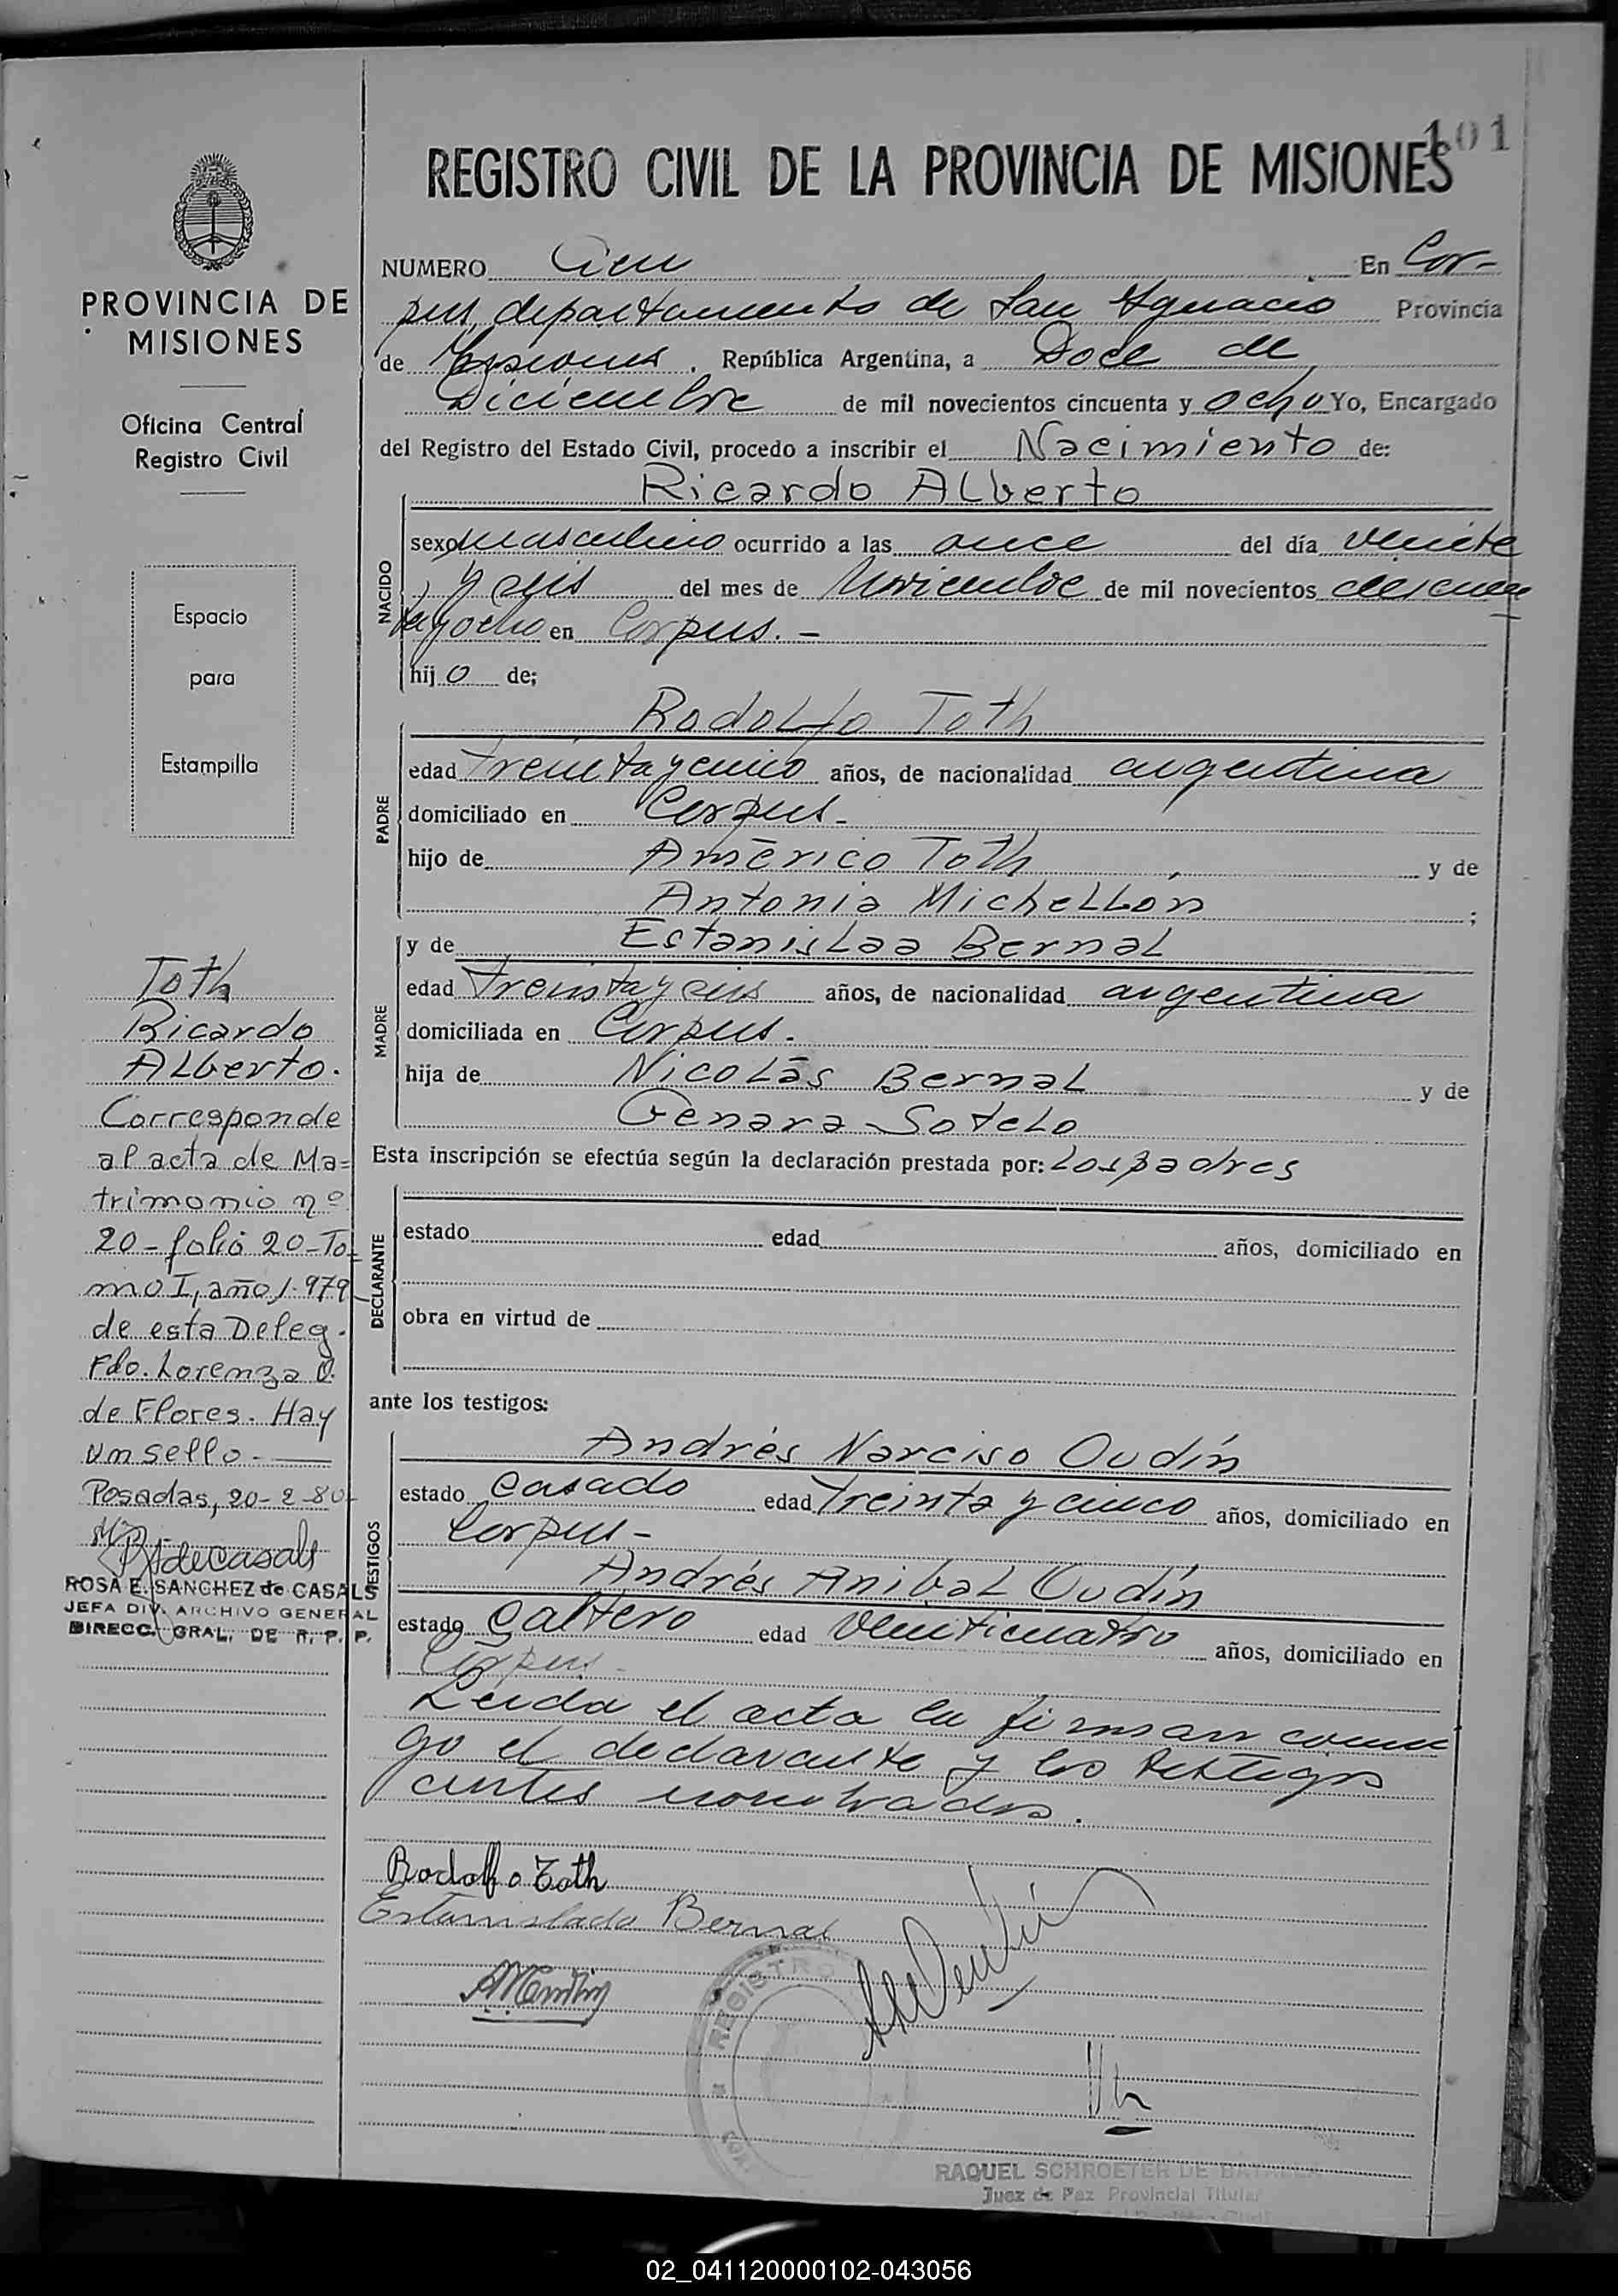 101
REGISTRO CIVIL DE LA PROVINCIA DE MISIONES
PROVINCIA DE
MISIONES
Oficina Central
Registro Civil
Espacio
para
Estampilla
Toth
Ricardo
Alberto.
Corresponde
al acta de Ma=
trimonio nº
20-folio 20-To
mo I, año 1.979
de esta Deleg.
Fdo. Lorenza O.
de Flores. Hay
un sello.
Posadas, 20-2-80
ROSA E. SANCHEZ de CASALS
JEFA DIV. ARCHIVO GENERAL
DIRECC. GRAL. DE R. P. P.
NUMERO Cien En Cor-
pus, departamento de San Ignacio Provincia
de Misiones. República Argentina, a Doce de
Diciembre de mil novecientos cincuenta y ocho Yo, Encargado
del Registro del Estado Civil, procedo a inscribir el Nacimiento de:
NACIDO
Ricardo Alberto
sexo masculino ocurrido a las once del día veinte
y seis del mes de Noviembre de mil novecientos cincuen
ta y ocho en Corpus.-
hijo de;
PADRE
Rodolfo Toth
edad treinta y cinco años, de nacionalidad argentina
domiciliado en Corpus-
hijo de Américo Toth, y de
Antonia Michellón;
MADRE
y de Estanislaa Bernal
edad treinta y seis años, de nacionalidad argentina
domiciliada en Corpus.
hija de Nicolás Bernal y de
Genara Sotelo
Esta inscripción se efectúa según la declaración prestada por: Los padres
DECLARANTE
estado edad años, domiciliado en
obra en virtud de
ante los testigos:
TESTIGOS
Andrés Narciso Oudín
estado Casado edad Treinta y cinco años, domiciliado en
Corpus-
Andrés Anibal Oudín
estado Soltero edad veinticuatro años, domiciliado en
Corpus-
Leida el acta la firman conmi
go el declarante y los testigos
antes nombrados.
Rodolfo Toth
Estanislada Bernal
REGISTRO
RAQUEL SCHROETER DE
Juez de Paz Provincial Titular
02_041120000102-043056